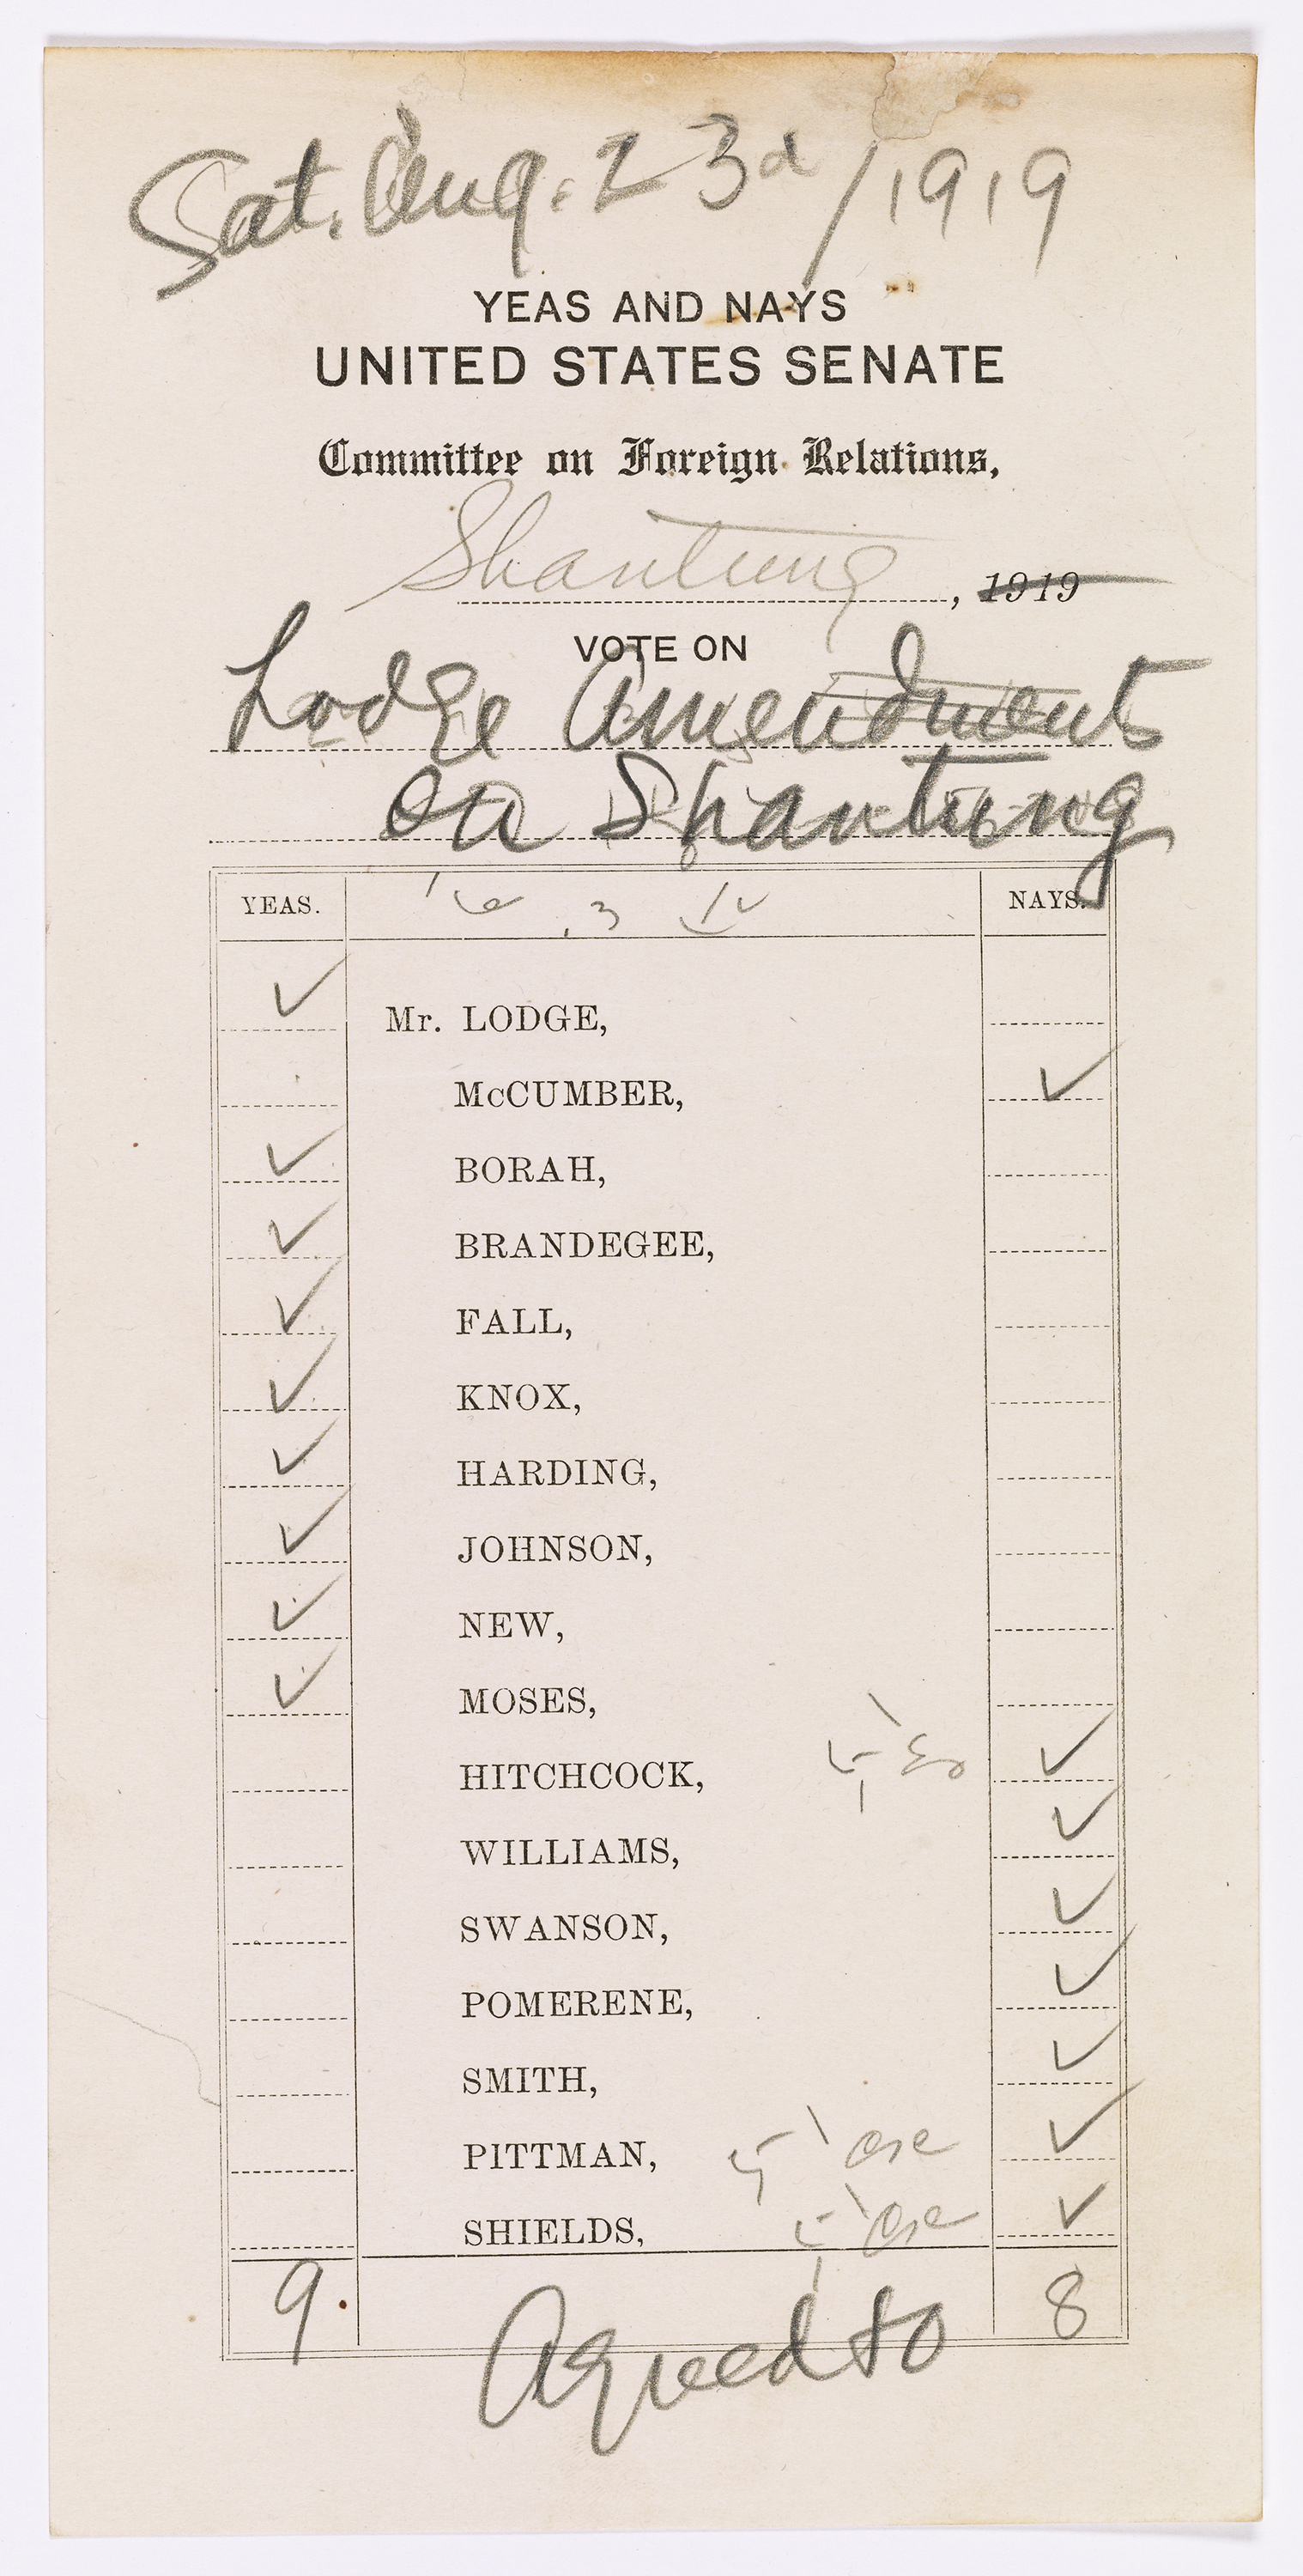 Sat. Aug. 23d/1919
YEAS AND NAYS
UNITED STATES SENATE
Committee on Foreign Relations,
Shantung, 1919
VOTE ON
Lodge Amendments
on Shantung
YEAS. NAYS.
✓ Mr. LODGE,
McCUMBER, ✓
✓ BORAH,
✓ BRANDEGEE,
✓ FALL,
✓ KNOX,
✓ HARDING,
✓ JOHNSON,
✓ NEW,
✓ MOSES,
HITCHCOCK, ✓
WILLIAMS, ✓
SWANSON, ✓
POMERENE, ✓
SMITH, ✓
PITTMAN, ✓
SHIELDS, ✓
9. Agreed to 8